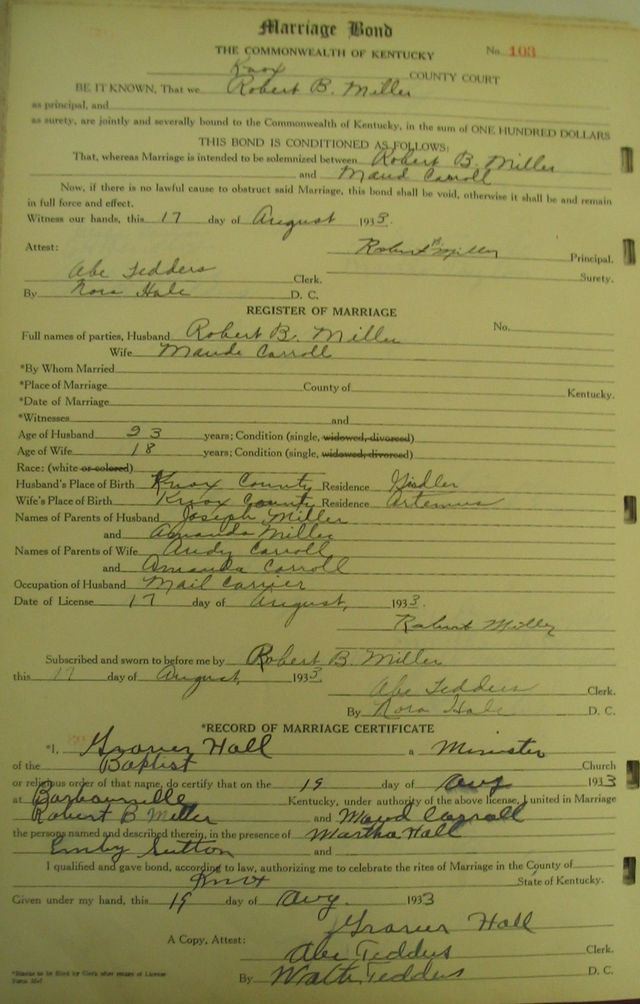 Marriage Bond
THE COMMONWEALTH OF KENTUCKY No. 103
Knox COUNTY COURT
BE IT KNOWN, That we Robert B. Miller
as principal, and
as surety, are jointly and severally bound to the Commonwealth of Kentucky, in the sum of ONE HUNDRED DOLLARS
THIS BOND IS CONDITIONED AS FOLLOWS:
That, whereas Marriage is intended to be solemnized between Robert B. Miller
and Maud Carroll
Now, if there is no lawful cause to obstruct said Marriage, this bond shall be void, otherwise it shall be and remain
in full force and effect.
Witness our hands, this 17 day of August 1933.
Attest: Robert B Miller Principal.
Abe Tedders Clerk. Surety.
By Nora Hale D. C.
REGISTER OF MARRIAGE
Full names of parties, Husband Robert B. Miller No.
Wife Maude Carroll
*By Whom Married
*Place of Marriage County of Kentucky.
*Date of Marriage
*Witnesses and
Age of Husband 23 years; Condition (single, widowed, divorced)
Age of Wife 18 years; Condition (single, widowed, divorced)
Race: (white or colored)
Husband's Place of Birth Knox County Residence
Wife's Place of Birth Knox County Residence Artemus
Names of Parents of Husband Joseph Miller
and Amanda Miller
Names of Parents of Wife Andy Carroll
and Amanda Carroll
Occupation of Husband Mail Carrier
Date of License 17 day of August, 1933.
Robert Miller
Subscribed and sworn to before me by Robert B. Miller
this 17 day of August, 1933.
Abe Tedders Clerk.
By Nora Hale D. C.
*RECORD OF MARRIAGE CERTIFICATE
*I, Grover Hall a Minister
of the Baptist Church
or religious order of that name, do certify that on the 19 day of Aug 1933
at Barbourville Kentucky, under authority of the above license, I united in Marriage
Robert B Miller and Maud Carroll
the persons named and described therein, in the presence of Martha Hall
Emby Sutton and
I qualified and gave bond, according to law, authorizing me to celebrate the rites of Marriage in the County of
Knox State of Kentucky.
Given under my hand, this 19 day of Aug. 1933
Grover Hall
A Copy, Attest: Abe Tedders Clerk.
By Walter Tedders D. C.
*Blanks to be filled by Clerk after return of License